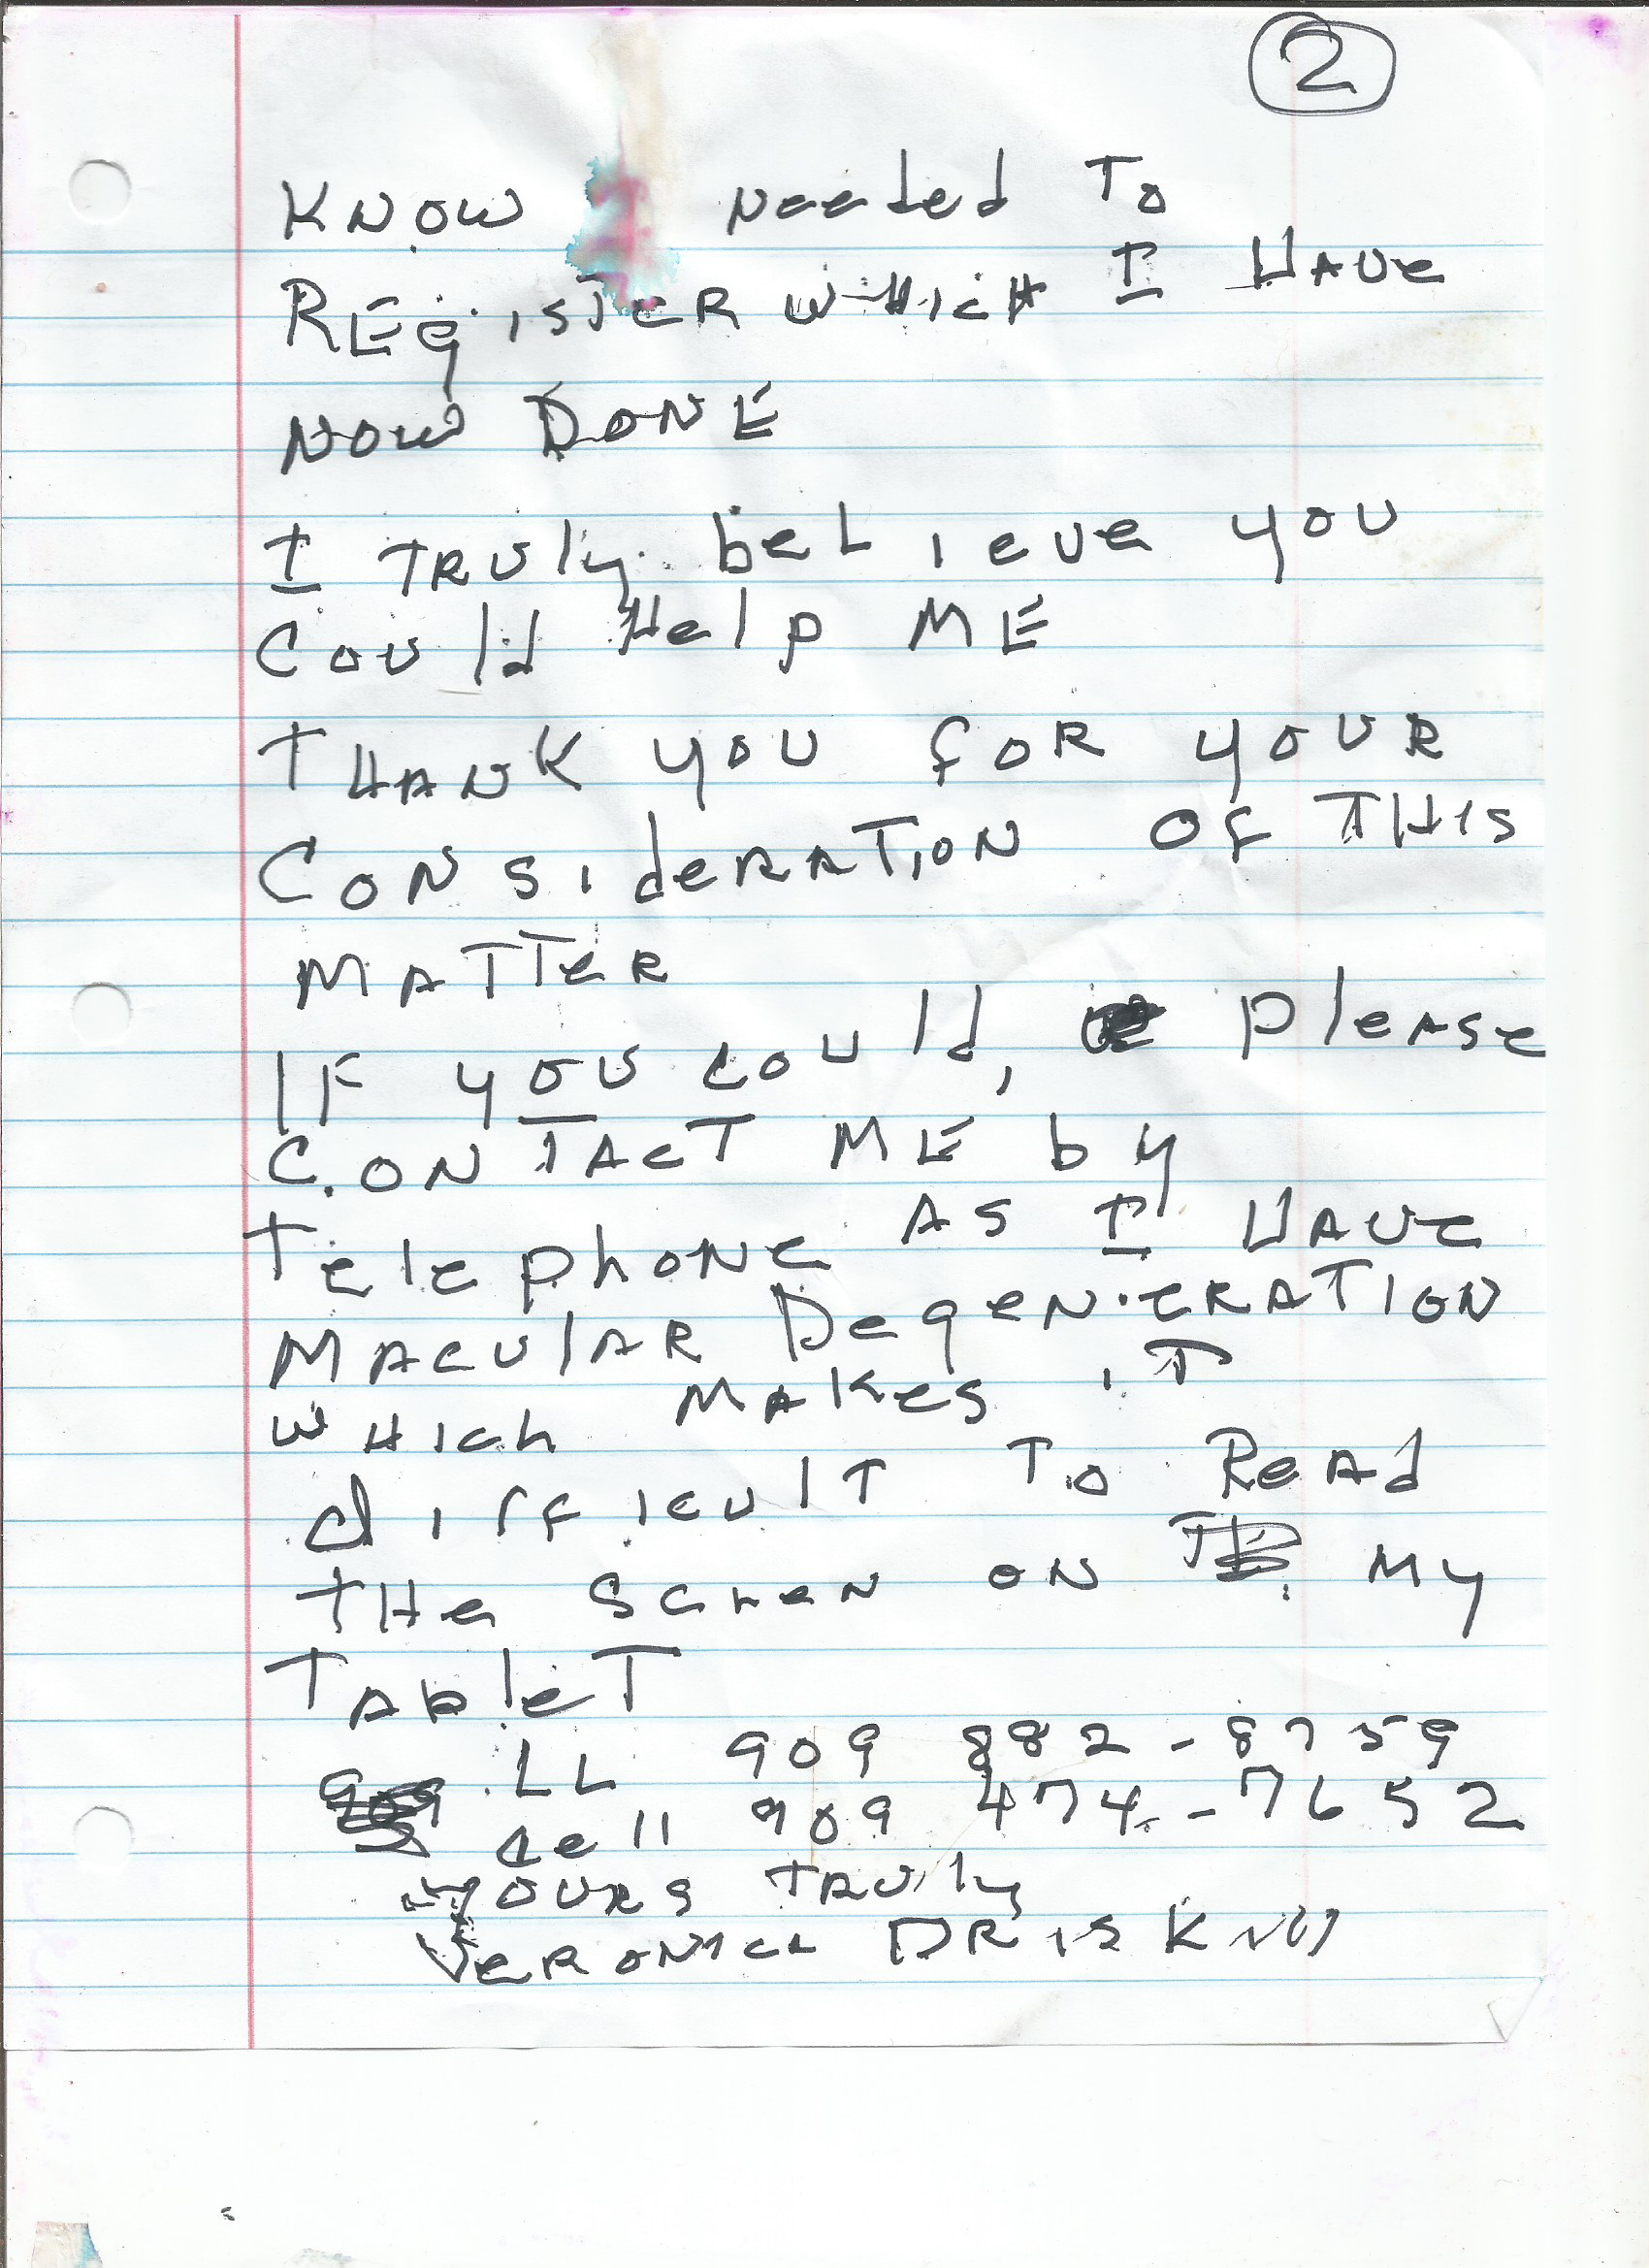 2
KNOW I Needed To
REgISTER WHICH I HAVe
NOW DONE
I TRUly beLieve you
Could Help ME
THANK you foR youR
CONSideRATION Of THIS
MATTeR
IF you could, Please
CONTACT ME by
TelephoNe AS I HAVe
MACUlAR DegeNeRATION
WHICh MAKes iT
difficulT To ReAd
THe ScreeN oN My
TAbleT
LL 909 882-8759
cell 909 474-7652
youRs TRUly